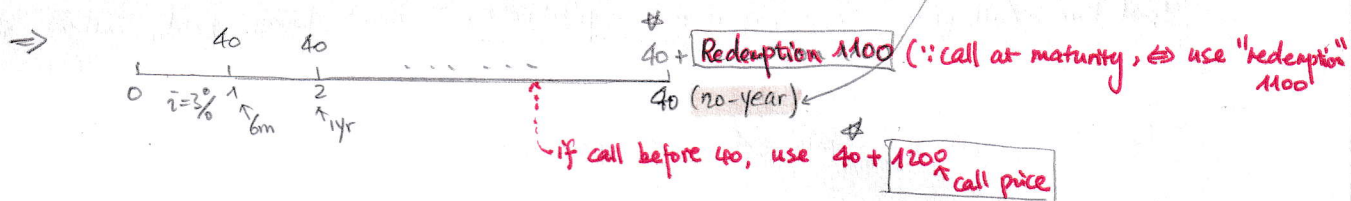 ⇒ 40 40 ☆ 40 + Redemption 1100 (∵ call at maturity, ⇔ use "redemption" 1100
0 i=3% 1 2 40 (20-year)
6m 1yr
if call before 40, use ☆ 40 + 1200
call price